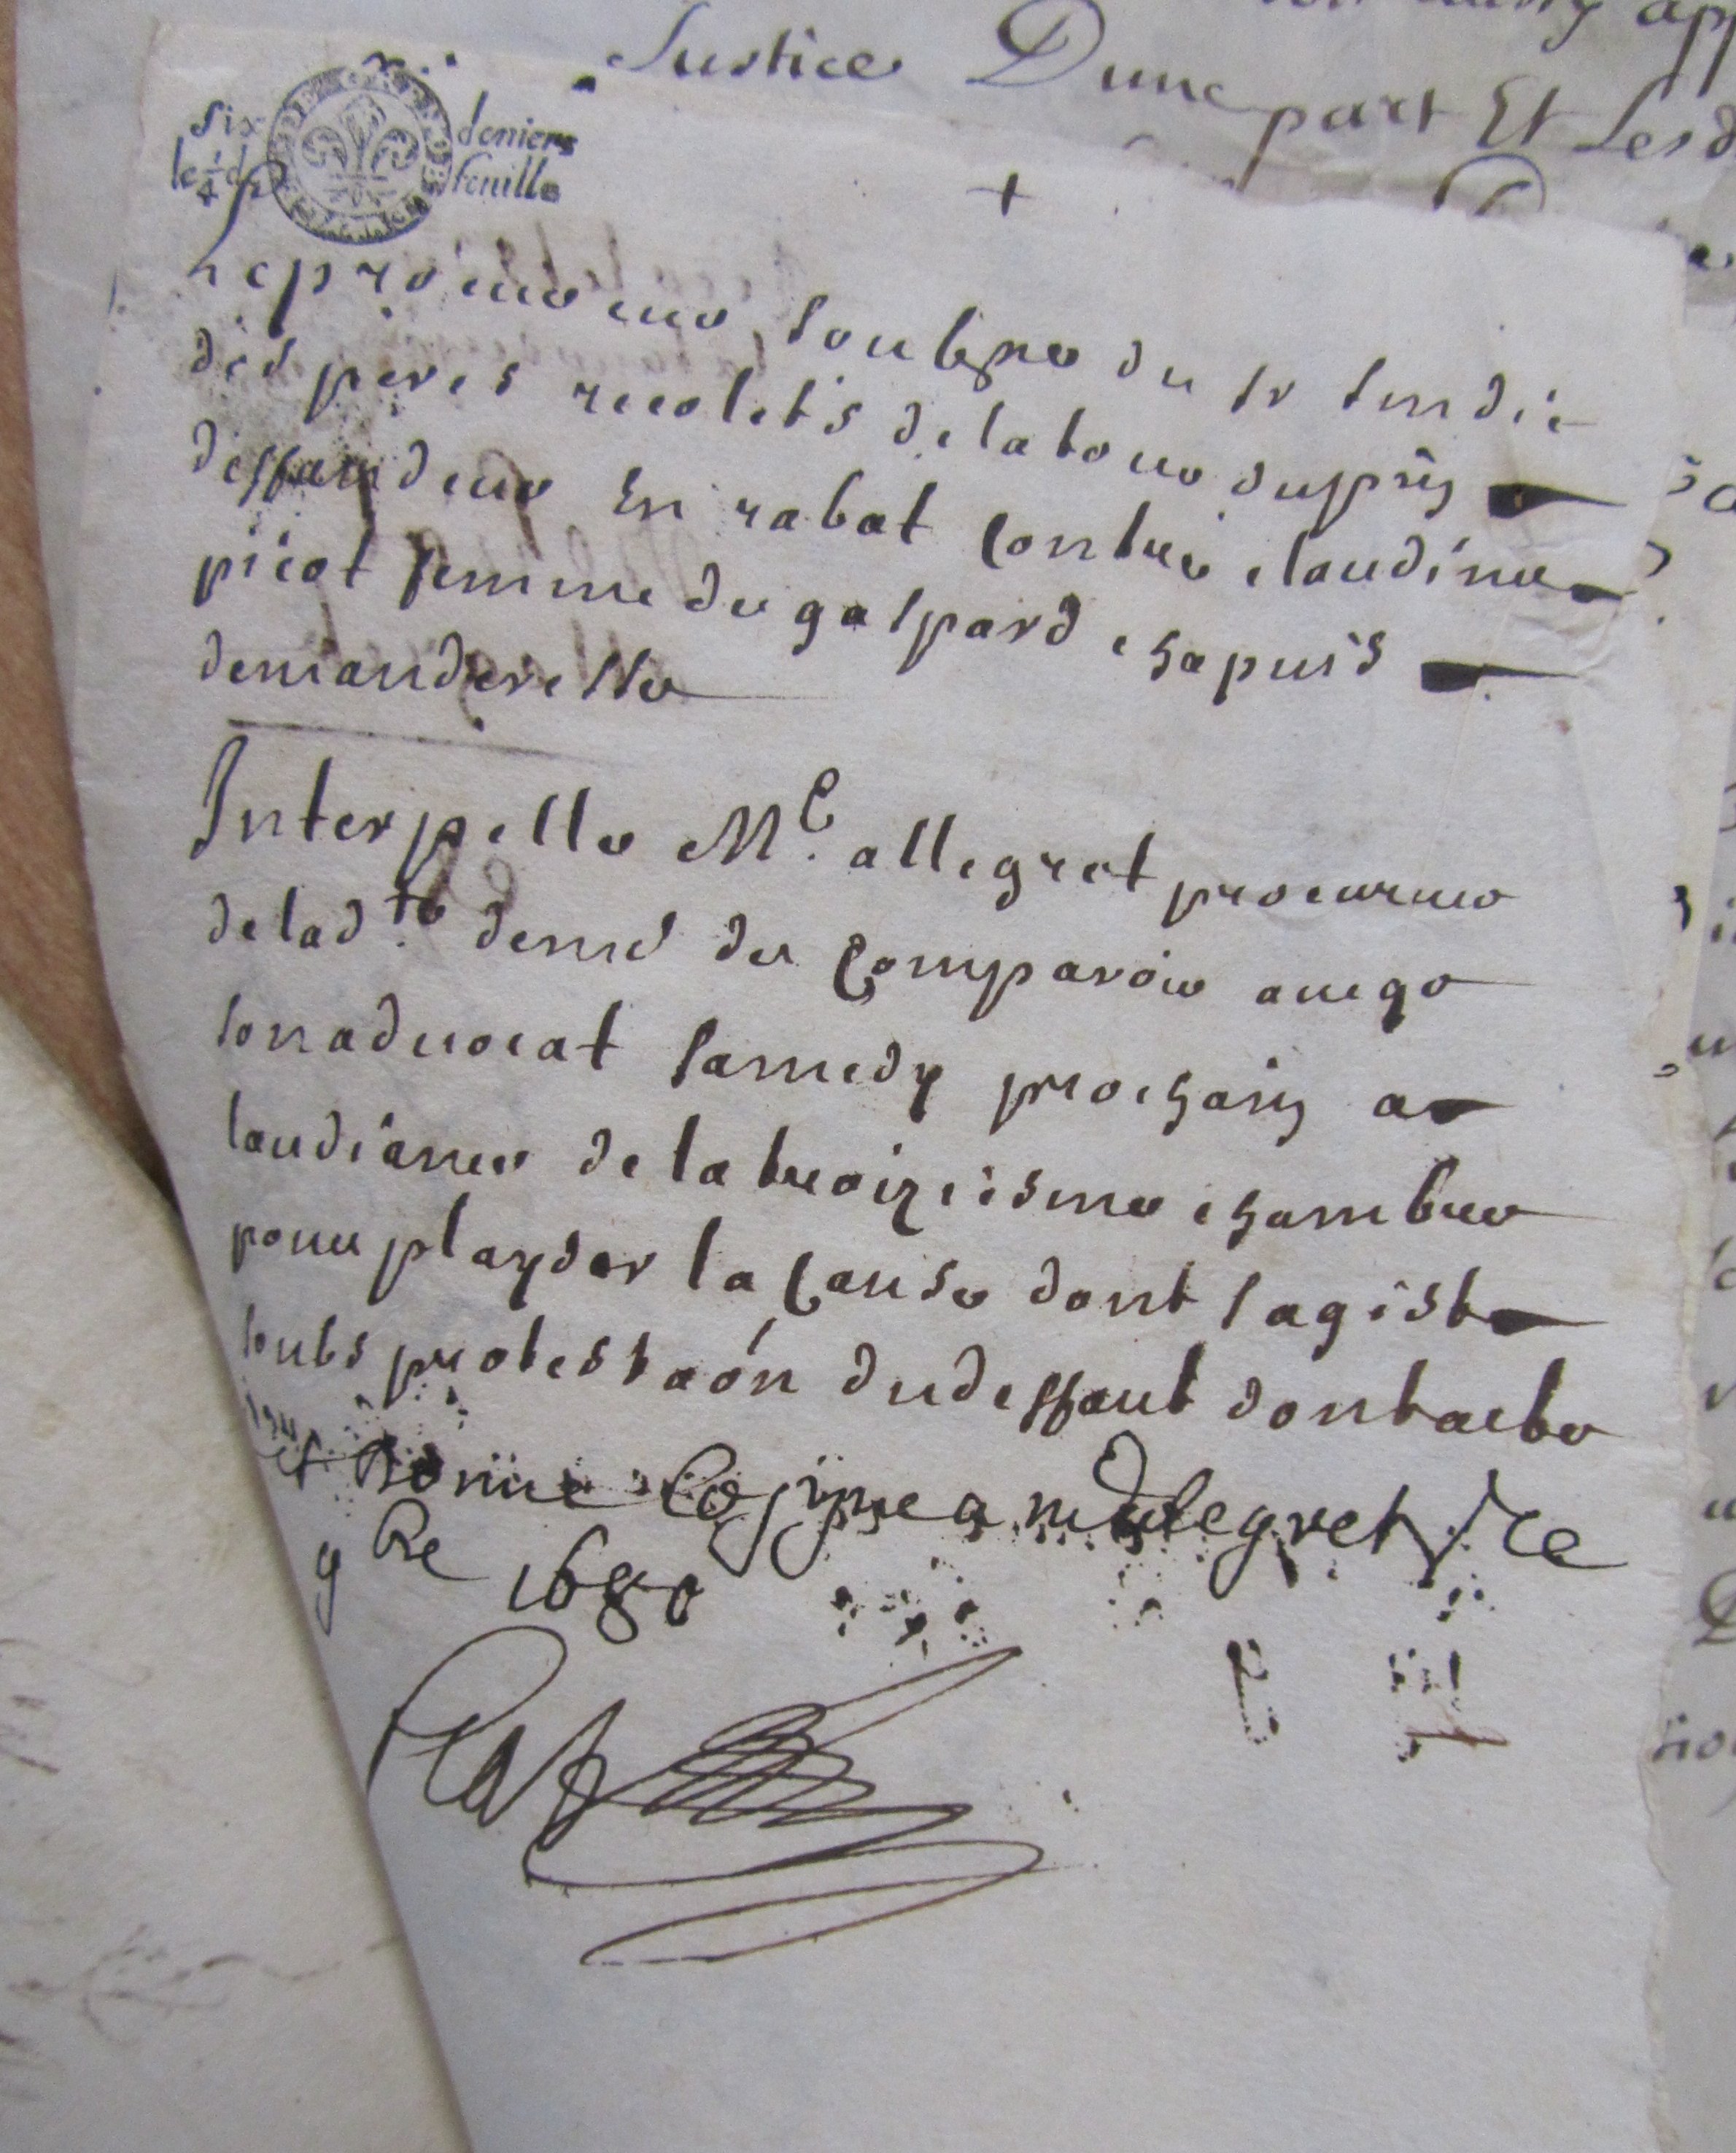 Justice Dune part Et Lesd
six deniers
le 1/4 de feuille
+
Le procureur soubsigne du sr sindic
des peres recolets de la tour du pin
deffandeur En rabat Contre claudine
picot femme de gaspard chapuis
demanderesse
Interpelle Me. allegret procureur
de lad.te dem.e de Comparoir aueqe
son aduocat samedy prochain a
laudiance de la troiziesme chambre
pour playder la Cause dont sagist
soubs protestaôn du deffaut dont acte
et donné Coppie a me allegret ce
9bre 1680